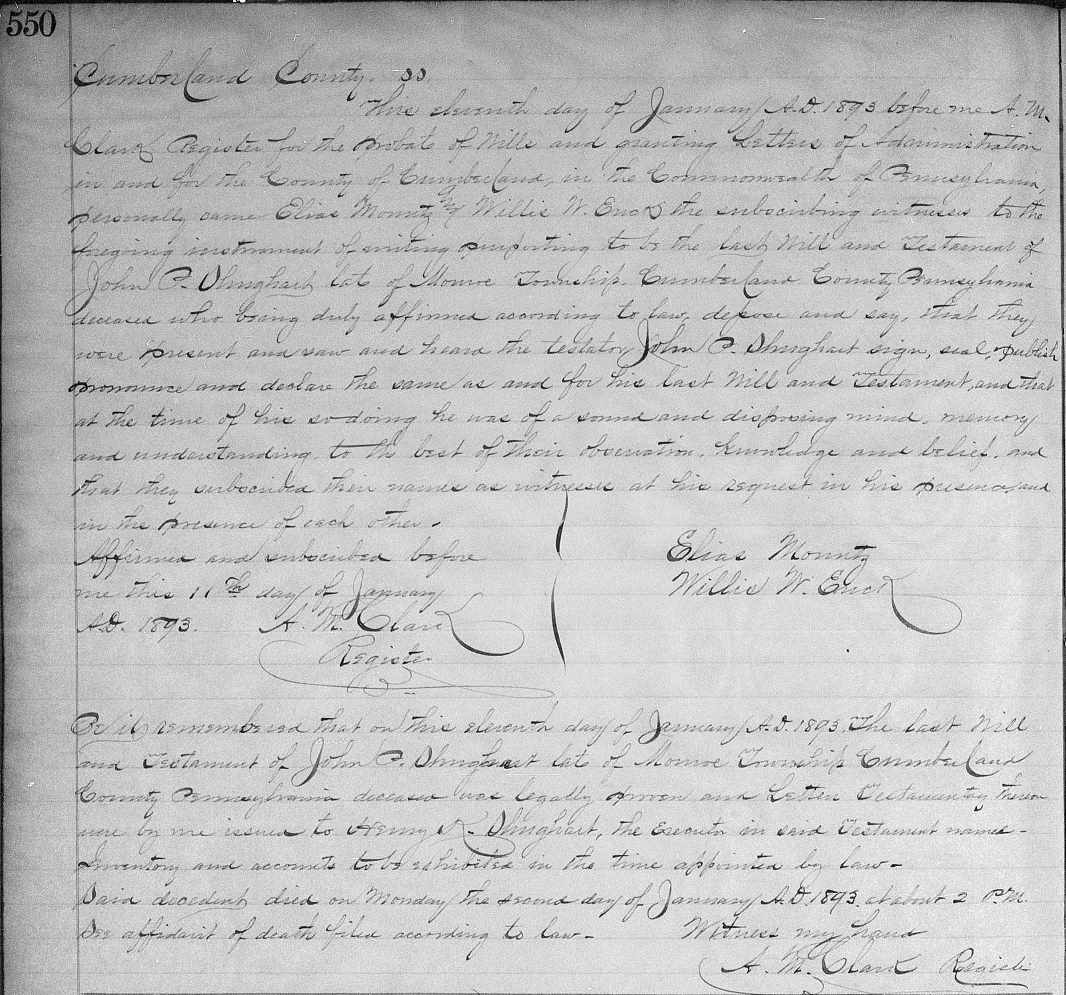 550
Cumberland County. SS.
This eleventh day of January A.D. 1893 before me A. M.
Clark Register for the probate of Wills and granting Letters of Administration
in and for the County of Cumberland, in the Commonwealth of Pennsylvania,
personally came Elias Mountz & Willis W. Enck the subscribing witnesses to the
foregoing instrument of writing purporting to be the last Will and Testament of
John P. Shughart late of Monroe Township Cumberland County Pennsylvania
deceased who being duly affirmed according to law, depose and say, that they
were present and saw and heard the testator John P. Shughart sign, seal, publish
pronounce and declare the same as and for his last Will and Testament, and that
at the time of his so doing he was of a sound and disposing mind, memory
and understanding to the best of their observation, knowledge and belief, and
that they subscribed their names as witnesses at his request in his presence and
in the presence of each other.
Affirmed and subscribed before
me this 11th day of January
A.D. 1893. A. M. Clark
Register
Elias Mountz
Willis W. Enck
Be it remembered that on this eleventh day of January A.D. 1893. The last Will
and Testament of John P. Shughart late of Monroe Township Cumberland
County Pennsylvania deceased was legally proven and Letters Testamentary thereon
were by me issued to Henry K. Shughart, the Executor in said Testament named-
Inventory and accounts to be exhibited in the time appointed by law-
Said decedent died on Monday the second day of January A.D. 1893. at about 2 P.M.
See affidavit of death filed according to law- Witness my hand
A. M. Clark Register